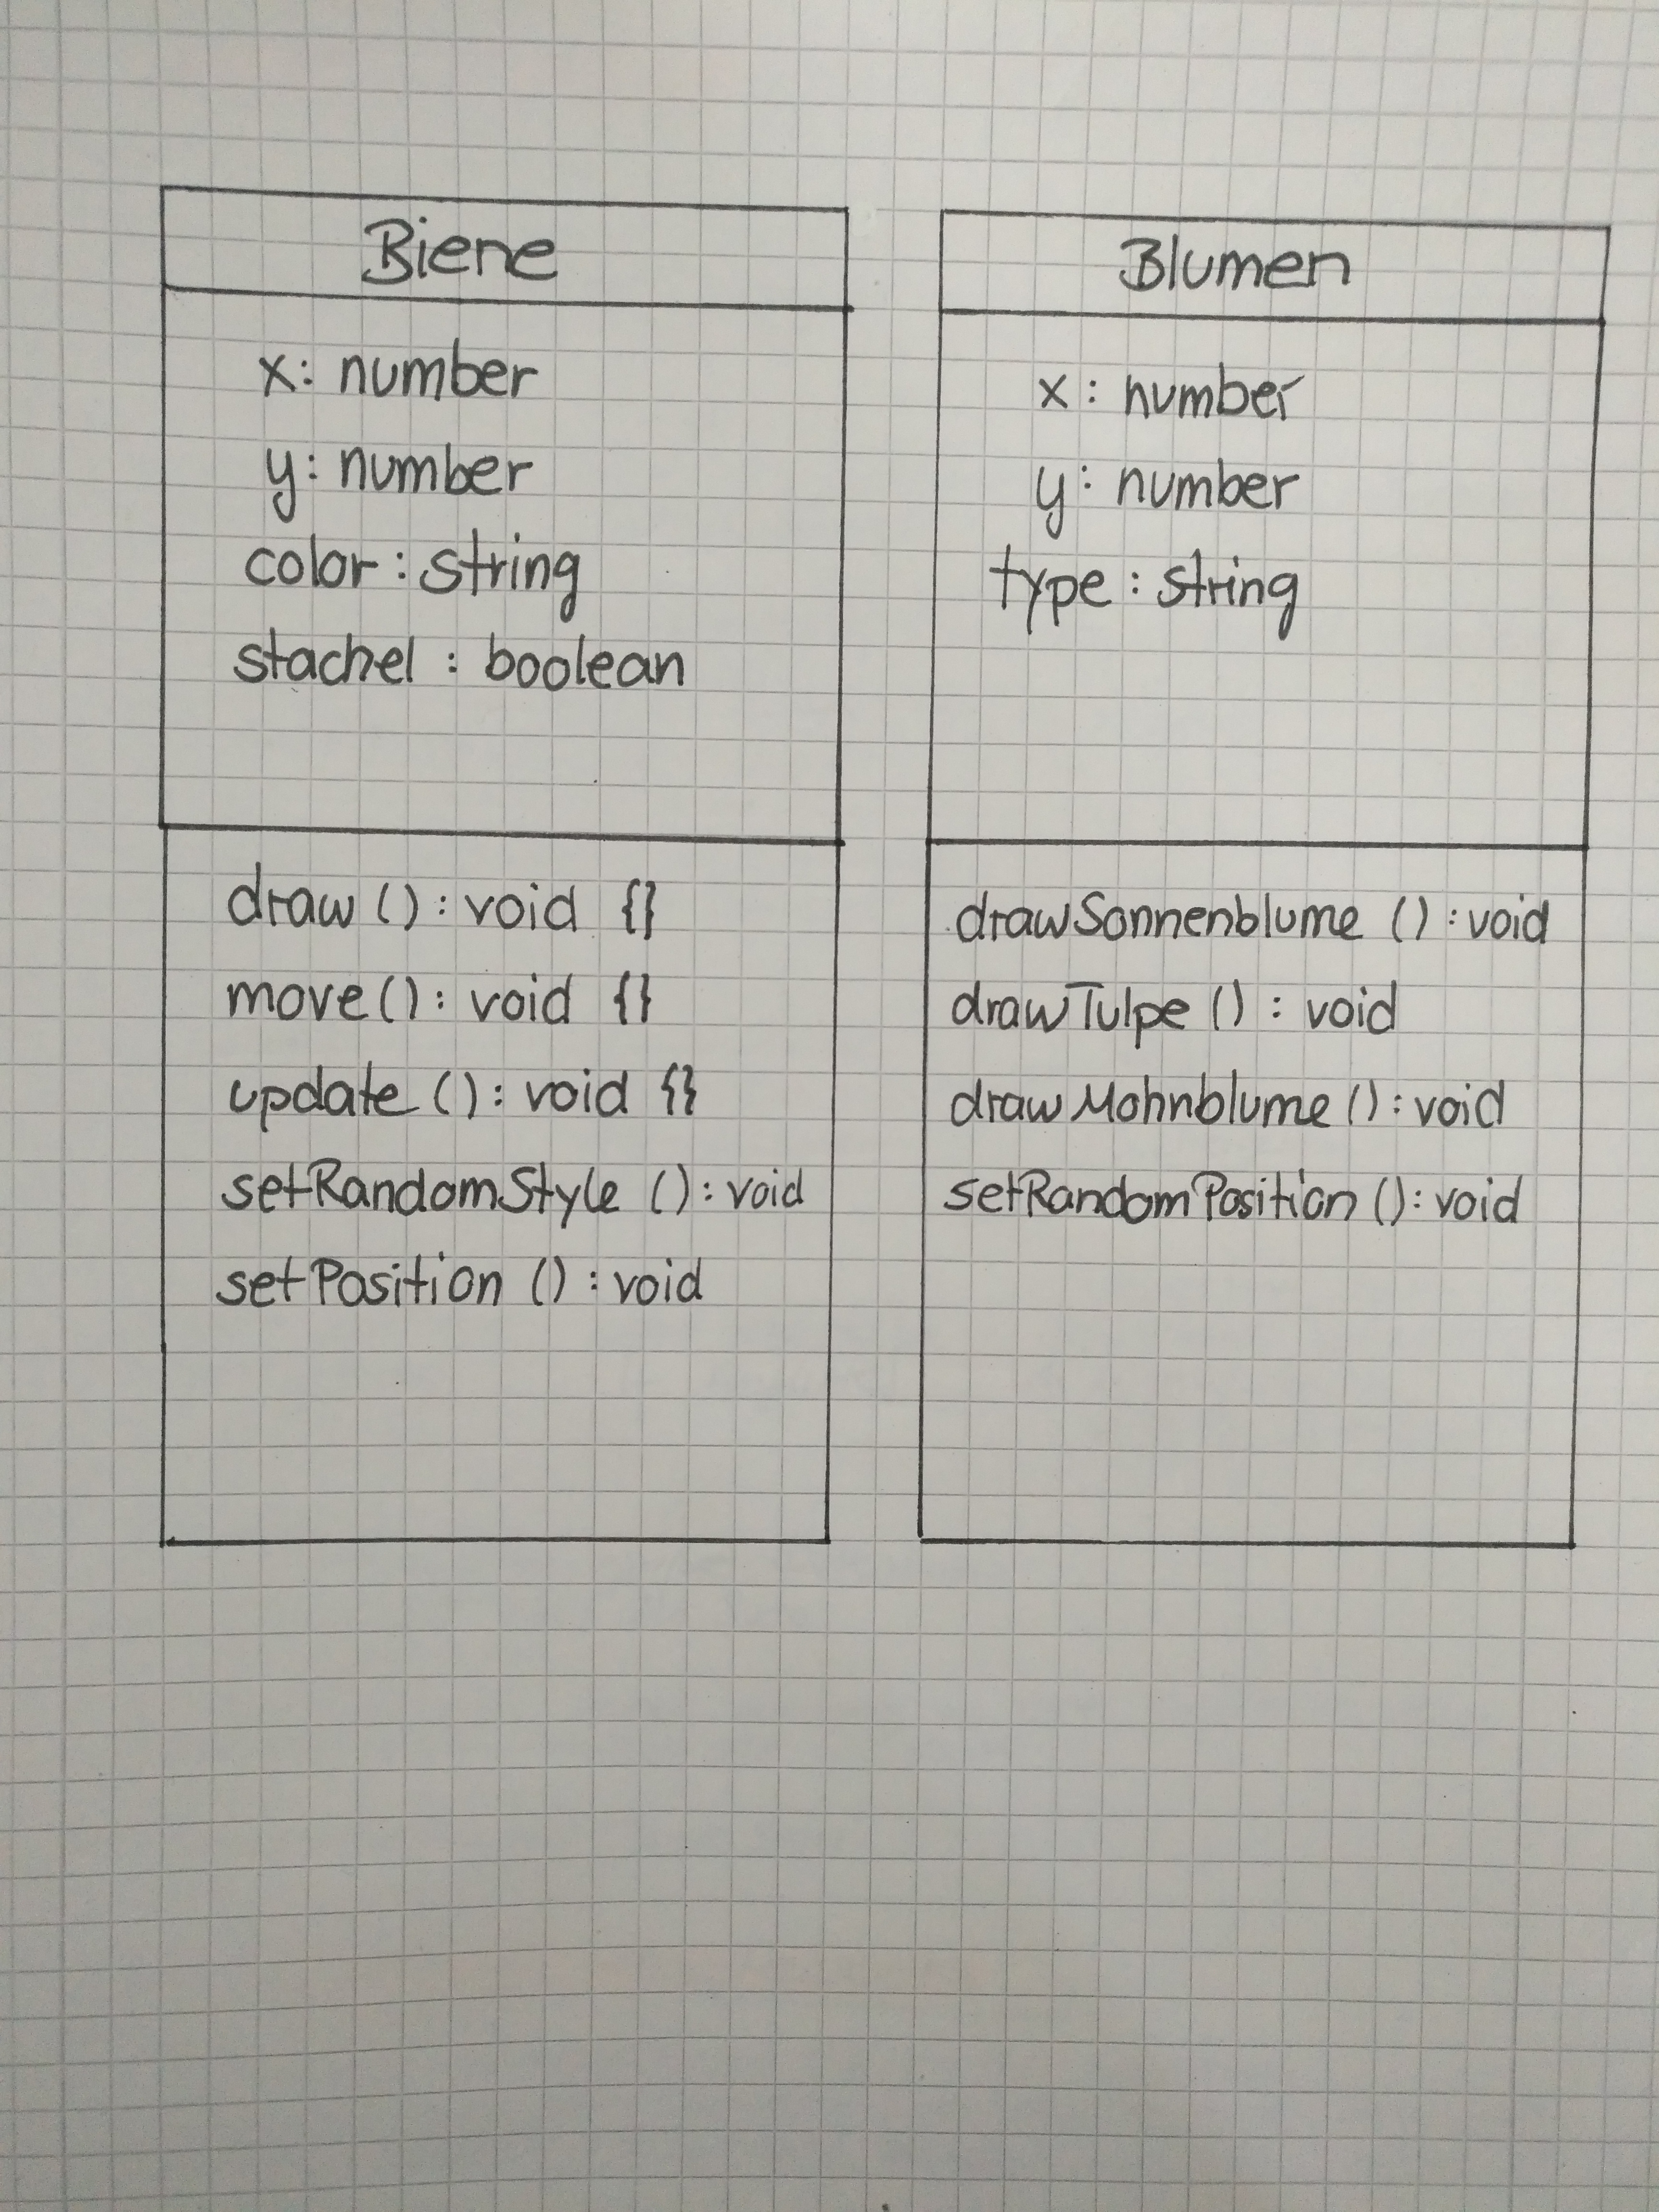 Biene
x: number
y: number
color: string
stachel: boolean
draw(): void {}
move(): void {}
update(): void {}
setRandomStyle(): void
setPosition(): void
Blumen
x: number
y: number
type: string
drawSonnenblume(): void
drawTulpe(): void
drawMohnblume(): void
setRandomPosition(): void